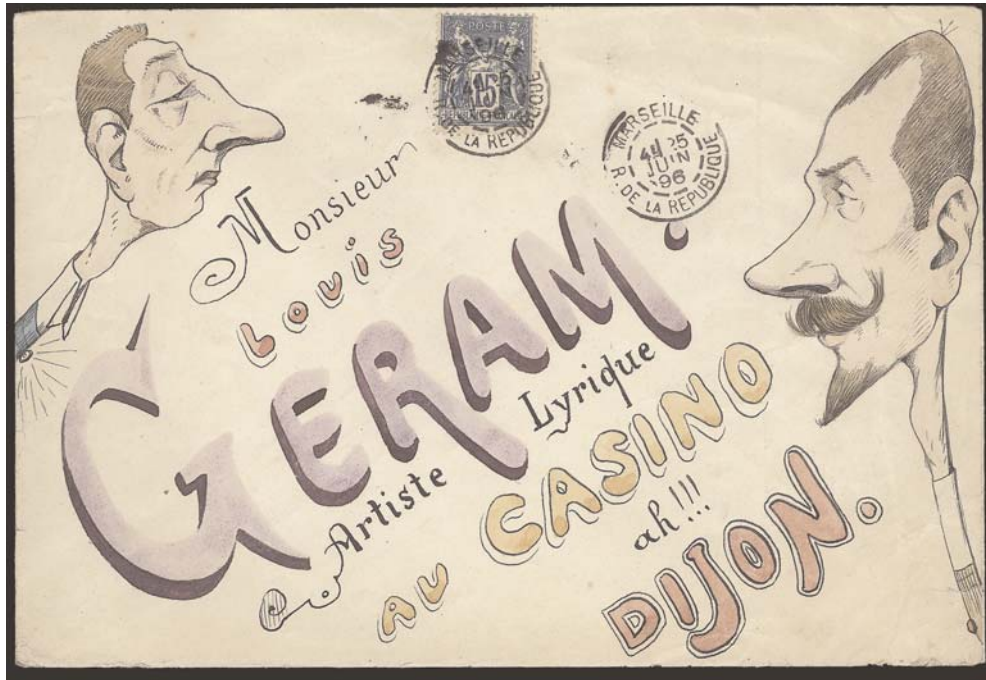 POSTE
MARSEILLE
15
DE LA REPUBLIQUE
MARSEILLE
25
JUIN
96
R. DE LA REPUBLIQUE
Monsieur
Louis
GERAM.
Artiste Lyrique
AU CASINO
ah!!!
DIJON.